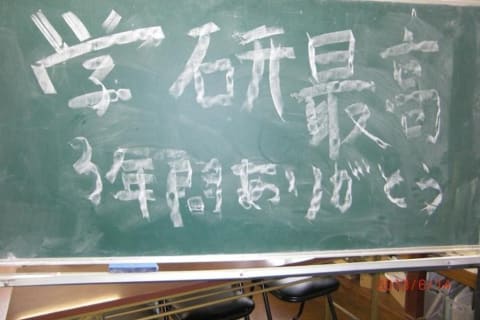 学研最高
3年間ありがとう